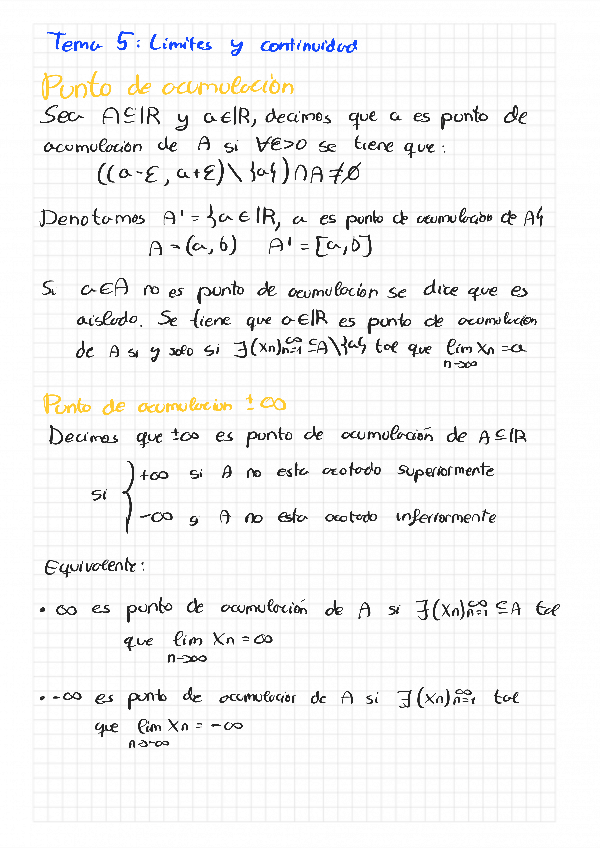 Tema 5: Límites y continuidad
Punto de acumulación
Sea A⊆ℝ y a∈ℝ, decimos que a es punto de
acumulación de A si ∀ε>0 se tiene que:
((a-ε, a+ε)\{a})∩A≠∅
Denotamos A' = {a∈ℝ, a es punto de acumulación de A}
A = (a, b)    A' = [a, b]
Si a∈A no es punto de acumulación se dice que es
aislado. Se tiene que a∈ℝ es punto de acumulación
de A si y solo si ∃(xn)_{n=1}^∞ ⊆A\{a} tal que lim_{n→∞} xn = a
Punto de acumulación ±∞
Decimos que ±∞ es punto de acumulación de A⊆ℝ
si { +∞ si A no esta acotado superiormente
-∞ si A no esta acotado inferiormente
Equivalente:
• ∞ es punto de acumulación de A si ∃(xn)_{n=1}^∞ ⊆A tal
que lim_{n→∞} xn = ∞
• -∞ es punto de acumulación de A si ∃(xn)_{n=1}^∞ tal
que lim_{n→-∞} xn = -∞